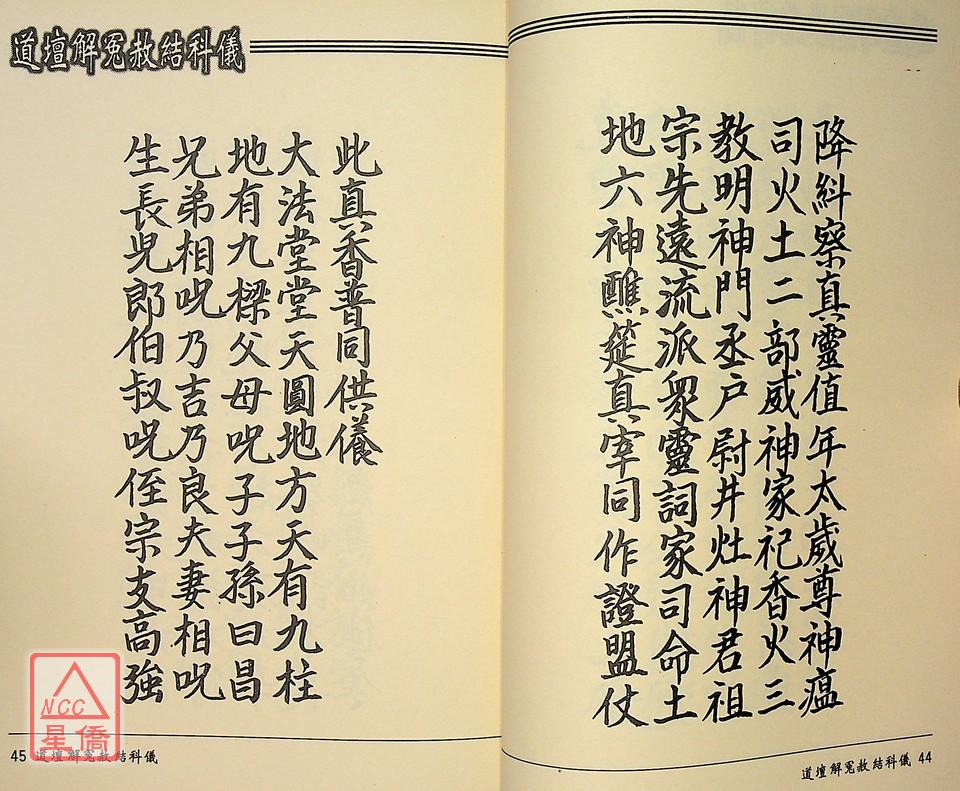 降糾察真靈值年太歲尊神瘟
司火土二部威神家祀香火三
教明神門丞户尉井灶神君祖
宗先遠流派眾靈詞家司命土
地六神醮筵真宰同作證盟仗
道壇解冤赦結科儀 44
道壇解冤赦結科儀
此真香普同供養
大法堂堂天圓地方天有九柱
地有九樑父母呪子子孫曰昌
兄弟相呪乃吉乃良夫妻相呪
生長兒郎伯叔呪侄宗支高強
45 道壇解冤赦結科儀
NCC
星僑